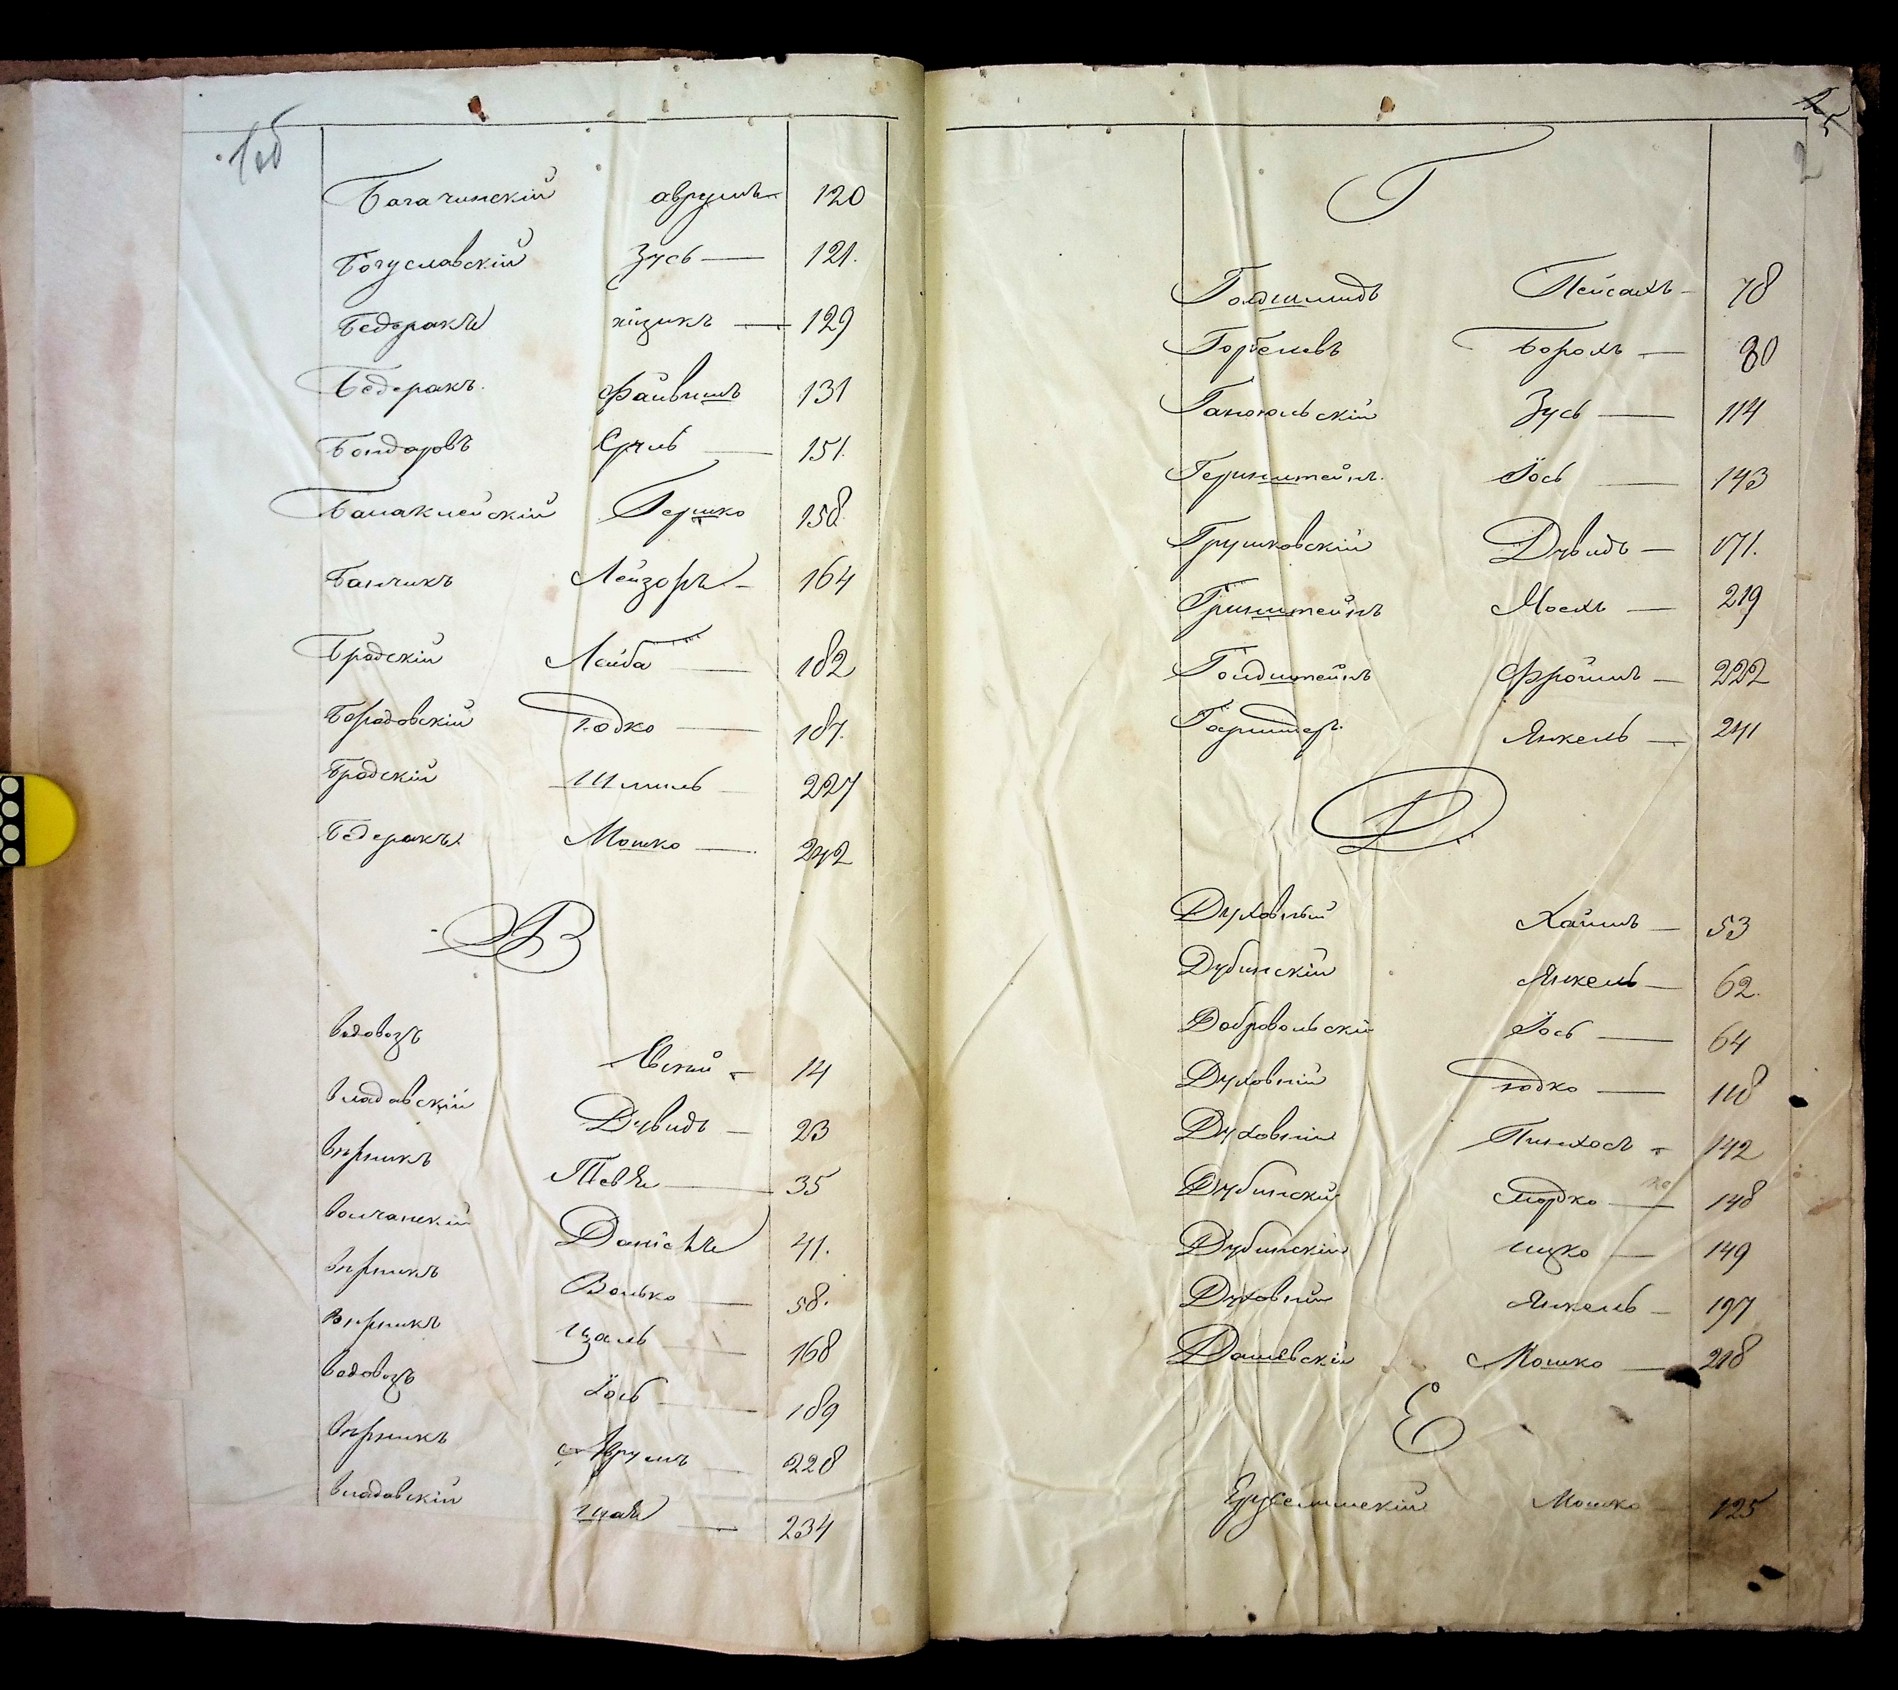 1об
Багачинскій Аврумъ 120
Богуславскій Зусь — 121.
Бедеракъ Айзикъ — 129
Бедеракъ Файвишъ 131
Бондаровъ Сруль — 151.
Балаклейскій Гершко 158
Банчикъ Лейзоръ — 164
Бродскій Лейба — 182
Бородовскій Юдко — 187.
Бродскій Шмиль — 227
Бедеракъ Мошко — 242
В
Водовозъ Евсей — 14
Владавскій Дувидъ — 23
Вѣрникъ Тевъя — 35
Волчанскій Даніелъ 41.
Вѣрникъ Волько — 58.
Вѣрникъ Цаль — 168
Водовозъ Іось — 189
Вѣрникъ Аврумъ — 228
Владавскій — 234
2
Г
Голдшмидъ Пейсахъ — 78
Борохъ — 80
Зусь — 114
Геринштейнъ. Іось — 143
Грушковскій Дувидъ — 171.
Гринштейнъ — 219
Голдштейнъ Фроимъ — 222
Янкель — 241
Д
Духовный Хаимъ — 53
Дубинскій Янкель — 62.
Добровольскій Іось — 64
Духовній Юдко — 118
Духовній Пинхосъ — 142
Дубинскій Мордко — 148
Дубинскій Ицко — 149
Духовній Янкель — 197
Дашевскій Мошко — 218
Е
Ерусалимскій Мошко 125